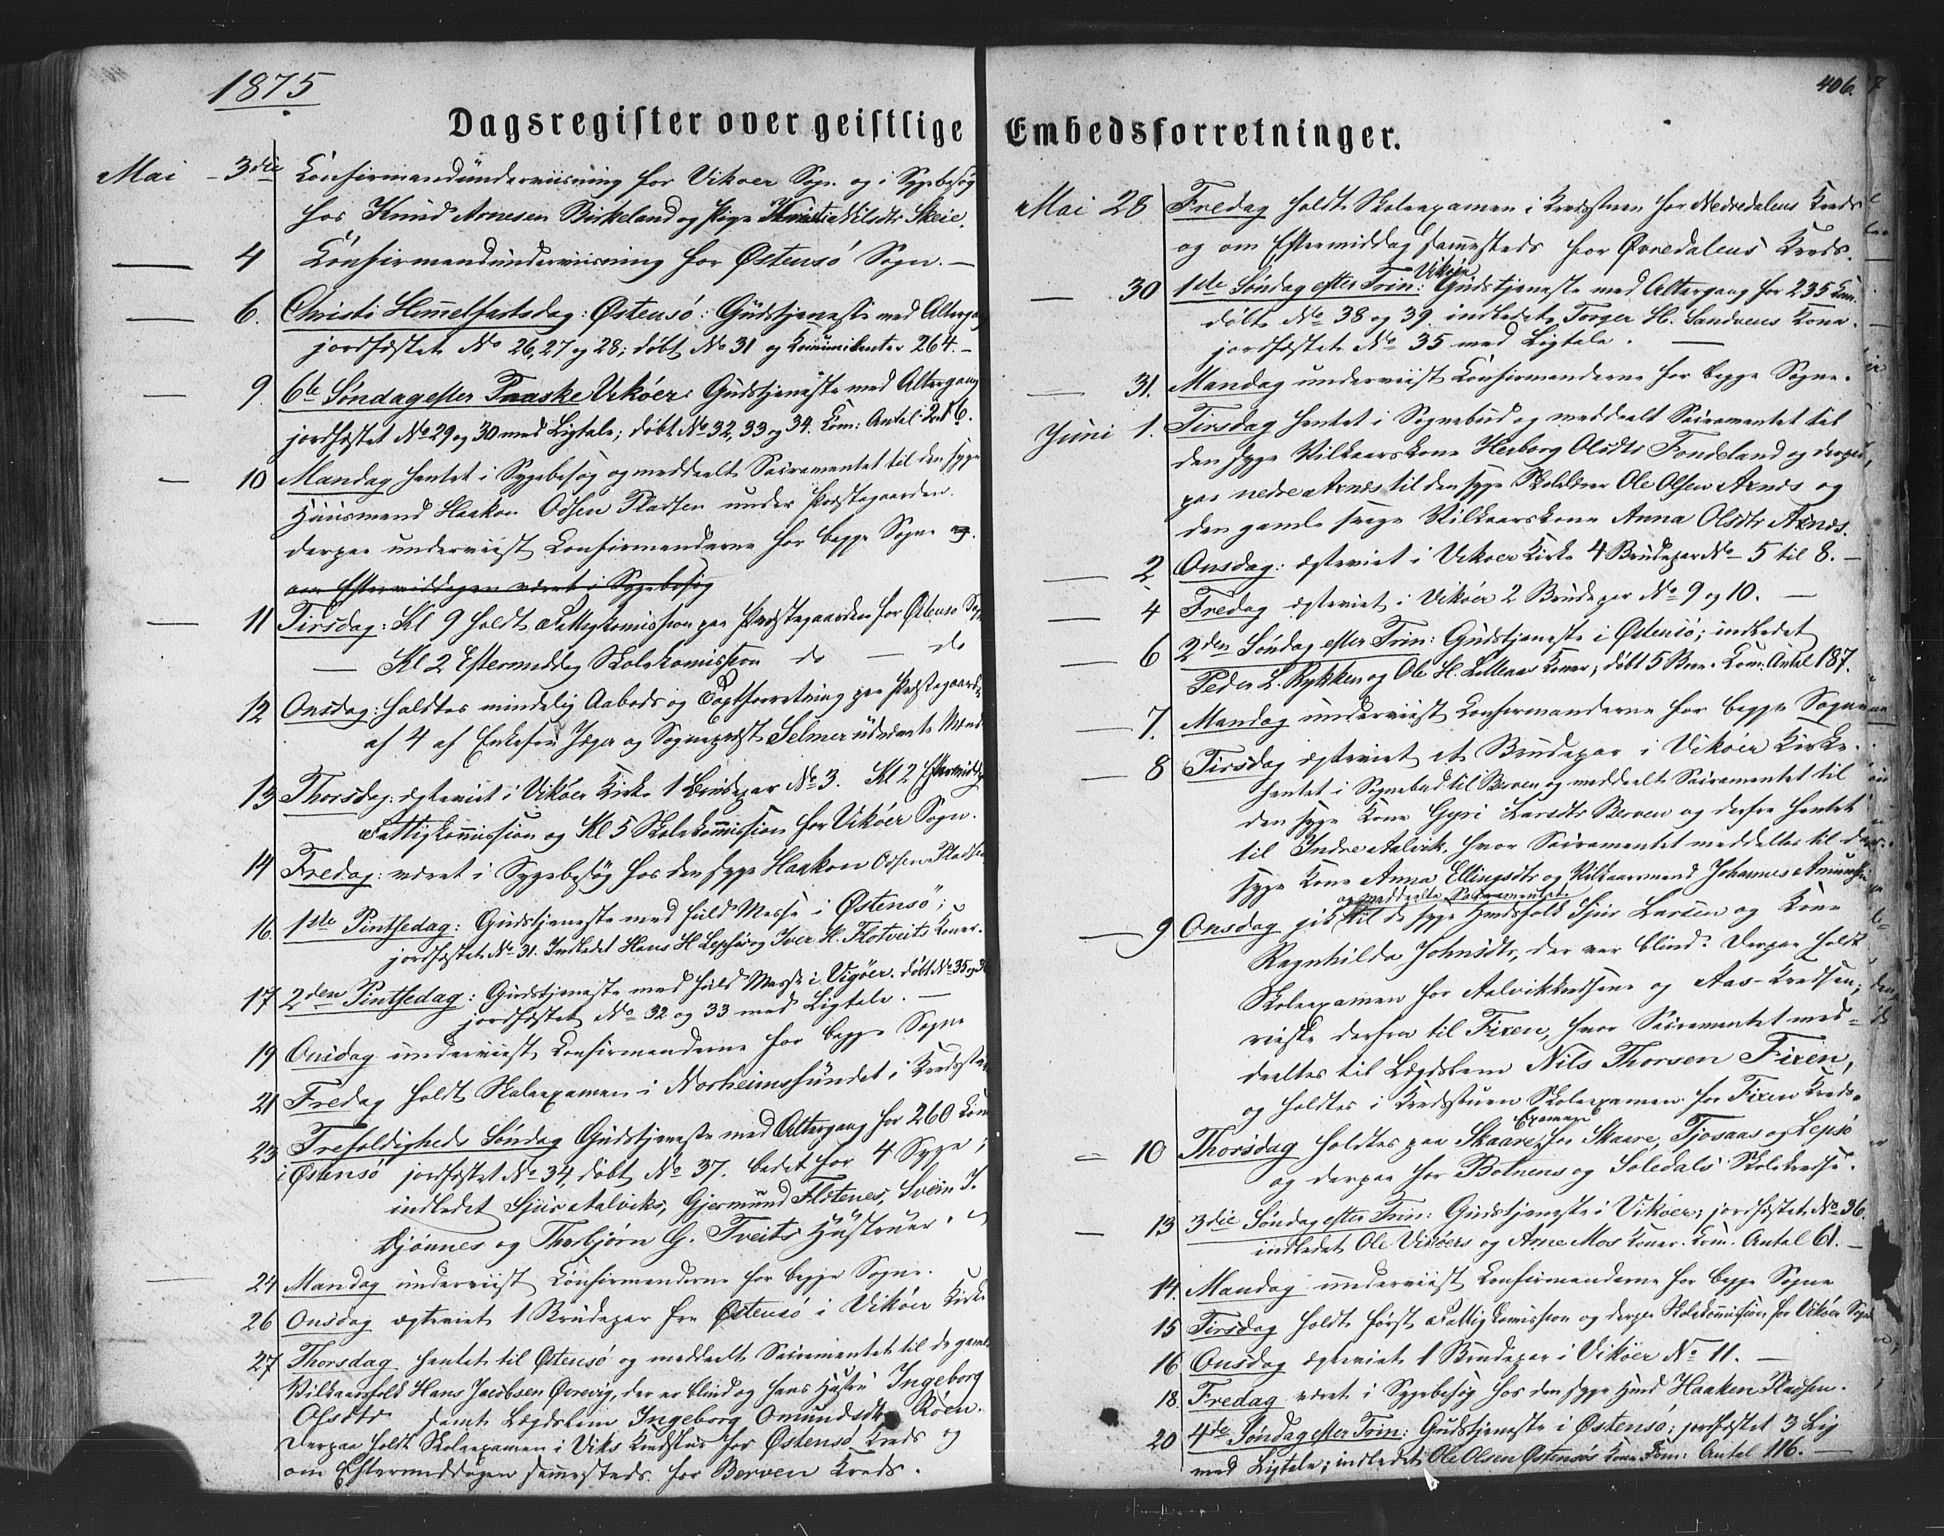 1875
Dagsregister over geistlige
Mai - 3die Confirmandunderviisning for Vikoer Sogn og i Sygebesøg
hos Knud Arnesen Birkeland og Pige Kristi Nilsdtr Skeie.
4 Confirmandunderviisning for Østensö Sogn. -
6. Christi Himmelfartsdag: Østensö: Gudstjeneste med Altergang
jordfæstet No 26, 27 og 28; døbt No 31 og Communicanter 264. -
9. 6te Søndag efter Paaske Vikøer: Gudstjeneste med Altergang
jordfæstet No 29 og 30 med Ligtale; døbt No 32, 33 og 34. Com: Antal: 216.
10 Mandag hentet i Sygebesøg og meddeelt Sacramentet til den syge
Huusmand Haakon Odsen Pladsen under Præstegaarden.
derpaa underviist Confirmanderne for begge Sogne og.
om Eftermiddagen været i Sygebesøg
11 Tirsdag: Kl 9 holdt Fattigkomission paa Præstegaarden for Østensø Sogn
— Kl 2 Eftermiddag Skolekomission do — do
12 Onsdag: holdtes mindelig Aabods og Taxtforretning paa Præstegaarden
af 4 af Enkefru Jæger og Sognepræst Selmer udnævnte Mænd
13 Thorsdag: ægteviet i Vikøer Kirke 1 Brudepar No 3. Kl 2 Eftermiddag
Fattigkommission og Kl 5 Skolekommission for Vikøer Sogn.
14 Fredag: været i Sygebesøg hos den syge Haakon Odsen Pladsen
16. 1ste Pintsedag: Gudstjeneste med fuld Messe i Østensö;
jordfæstet No 31. Indledet Hans H Lepsøe og Iver H. Flotveits Koner.
17 2den Pintsedag: Gudstjeneste med fuld Messe i Vigöer. døbt No 35 og 36
jordfæstet No 32 og 33 med Ligtale. —
19 Onsdag underviist Confirmanderne for begge Sogne
21 Fredag holdt Skoleexamen i Norheimssundet i Kredsstuen
23 Trefoldigheds Søndag Gudstjeneste med Altergang for 260 Com
i Østensö jordfæstet No 34, døbt No 37. bedet for 4 Syge;
indledet Sjur Aalviks, Gjermund Flotenes, Svein J.
Djønnes og Thorbjørn G. Tveits Hustruer.
24 Mandag underviist Confirmanderne for begge Sogne.
26 Onsdag ægteviet 1 Brudepar fra Østensö i Vikøer Kirke
27 Thorsdag hentet til Østensö og meddeelt Sacramentet til de gamle
Vilkaarsfolk Hans Jacobsen Øvrevig, der er blind og hans Hustru Ingeborg
Olsdtr samt Lægdslem Ingeborg Omundsdtr Røen.
Derpaa holdt Skoleexamen i Viks Kredsstue for Østensö Kreds og
om Eftermiddagen sammesteds for Berven Kreds.
406.
Embedsforretninger.
Mai 28 Fredag holdt Skoleexamen i Kredsstuen for Nedredalens Kreds
og om Eftermiddag sammesteds for Øvredalens Kreds.
Vikøer
30 1ste Søndag efter Trin: Gudstjeneste med Altergang for 235 Com.
døbt No 38 og 39. indledet Torger H. Sandvens Kone.
jordfæstet No 35 med Ligtale. —
31. Mandag underviist Confirmanderne for begge Sogne.
Juni 1. Tirsdag hentet i Sognebud og meddeelt Sacramentet til
den syge Vilkaarskone Herborg Olsdtr Tondeland og derpaa,
paa nedre Axnes til den syge Skolelærer Ole Olsen Axnes og
den gamle svage Vilkaarskone Anna Olsdtr Axnes.
2 Onsdag: ægteviet i Vikøer Kirke 4 Brudepar No 5 til 8. -
4 Fredag ægteviet i Vikøer 2 Brudepar No 9 og 10. —
6 2den Søndag efter Trin: Gudstjeneste i Østensö; indledet
Peder L. Rykken og Ole H. Lilleaas Koner; døbt 5 Børn. Com: Antal 187.
7. Mandag underviist Confirmanderne for begge Sogne
8 Tirsdag ægteviet et Brudepar i Vikøer Kirke.
hentet i Sognebud til Berven og meddeelt Sacramentet til
den syge Kone Gyri Larsdtr Berven og derfra hentet
til Indre Aalvik, hvor Sacramentet meddeltes til den
syge Kone Anna Ellingsdtr og Vilkaarsmand Johannes Amundsen
og meddeelte Sacramentet
9 Onsdag gik til de syge Huusfolk Sjur Larsen og Kone
Ragnhilda Johnsdtr, der var blind. Derpaa holdt
Skoleexamen for Aalvikkredsene og Aas-Kredsen;
reiste derfra til Fixen, hvor Sacramentet med=
deeltes til Lægdslem Nils Thorsen Fixen,
og holdtes i Kredsstuen Skoleexamen for Fixen Kreds.
Examen
10 Thorsdag holdtes paa Skaare for Skaare, Tjosaas og Lepsö
og derpaa for Botnens og Soledals Skolekredse.
13 3die Søndag efter Trin: Gudstjeneste i Vikøer; jordfæstet No 36.
indledet Ole Vikøers og Arne Mos Koner. Com. Antal 61. -
14. Mandag underviist Confirmanderne for begge Sogne
15 Tirsdag holdt først Fattigkomission og derpaa Skolekommission for Vikøer Sogn
16 Onsdag ægteviet 1 Brudepar i Vikøer No 11. —
18. Fredag været i Sygebesøg hos den syge Huusmd Haaken Pladsen.
20 4de Søndag efter Trin: Gudstjeneste i Østensö; jordfæstet 3 Lig
med Ligtale; indledet Ole Olsen Østensös Kone. Com: Antal 116. —